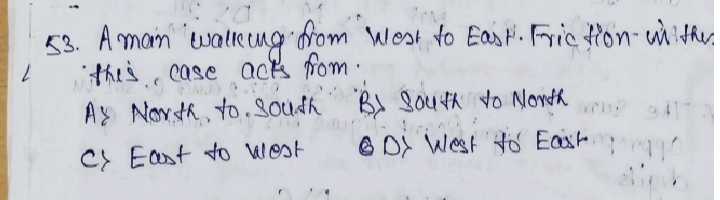 53. A man walking from West to East. Friction in
this case acts from.
A) North to South B) South to North
C) East to West D) West to East